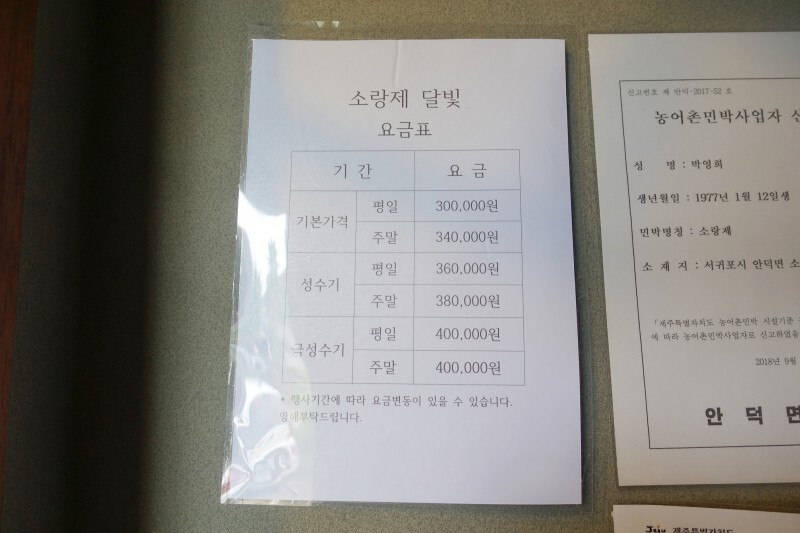 소랑제 달빛
요금표
기 간 요 금
기본가격 평일 300,000원
주말 340,000원
성수기 평일 360,000원
주말 380,000원
극성수기 평일 400,000원
주말 400,000원
* 행사기간에 따라 요금변동이 있을 수 있습니다.
양해부탁드립니다.
신고번호 제 안덕-2017-52 호
농어촌민박사업자 신
성 명 : 박영희
생년월일 : 1977년 1월 12일생
민박명칭 : 소랑제
소 재 지 : 서귀포시 안덕면 소
「제주특별자치도 농어촌민박 시설기준
에 따라 농어촌민박사업자로 신고하였음
2018년 9월
안 덕 면
제주특별자치도